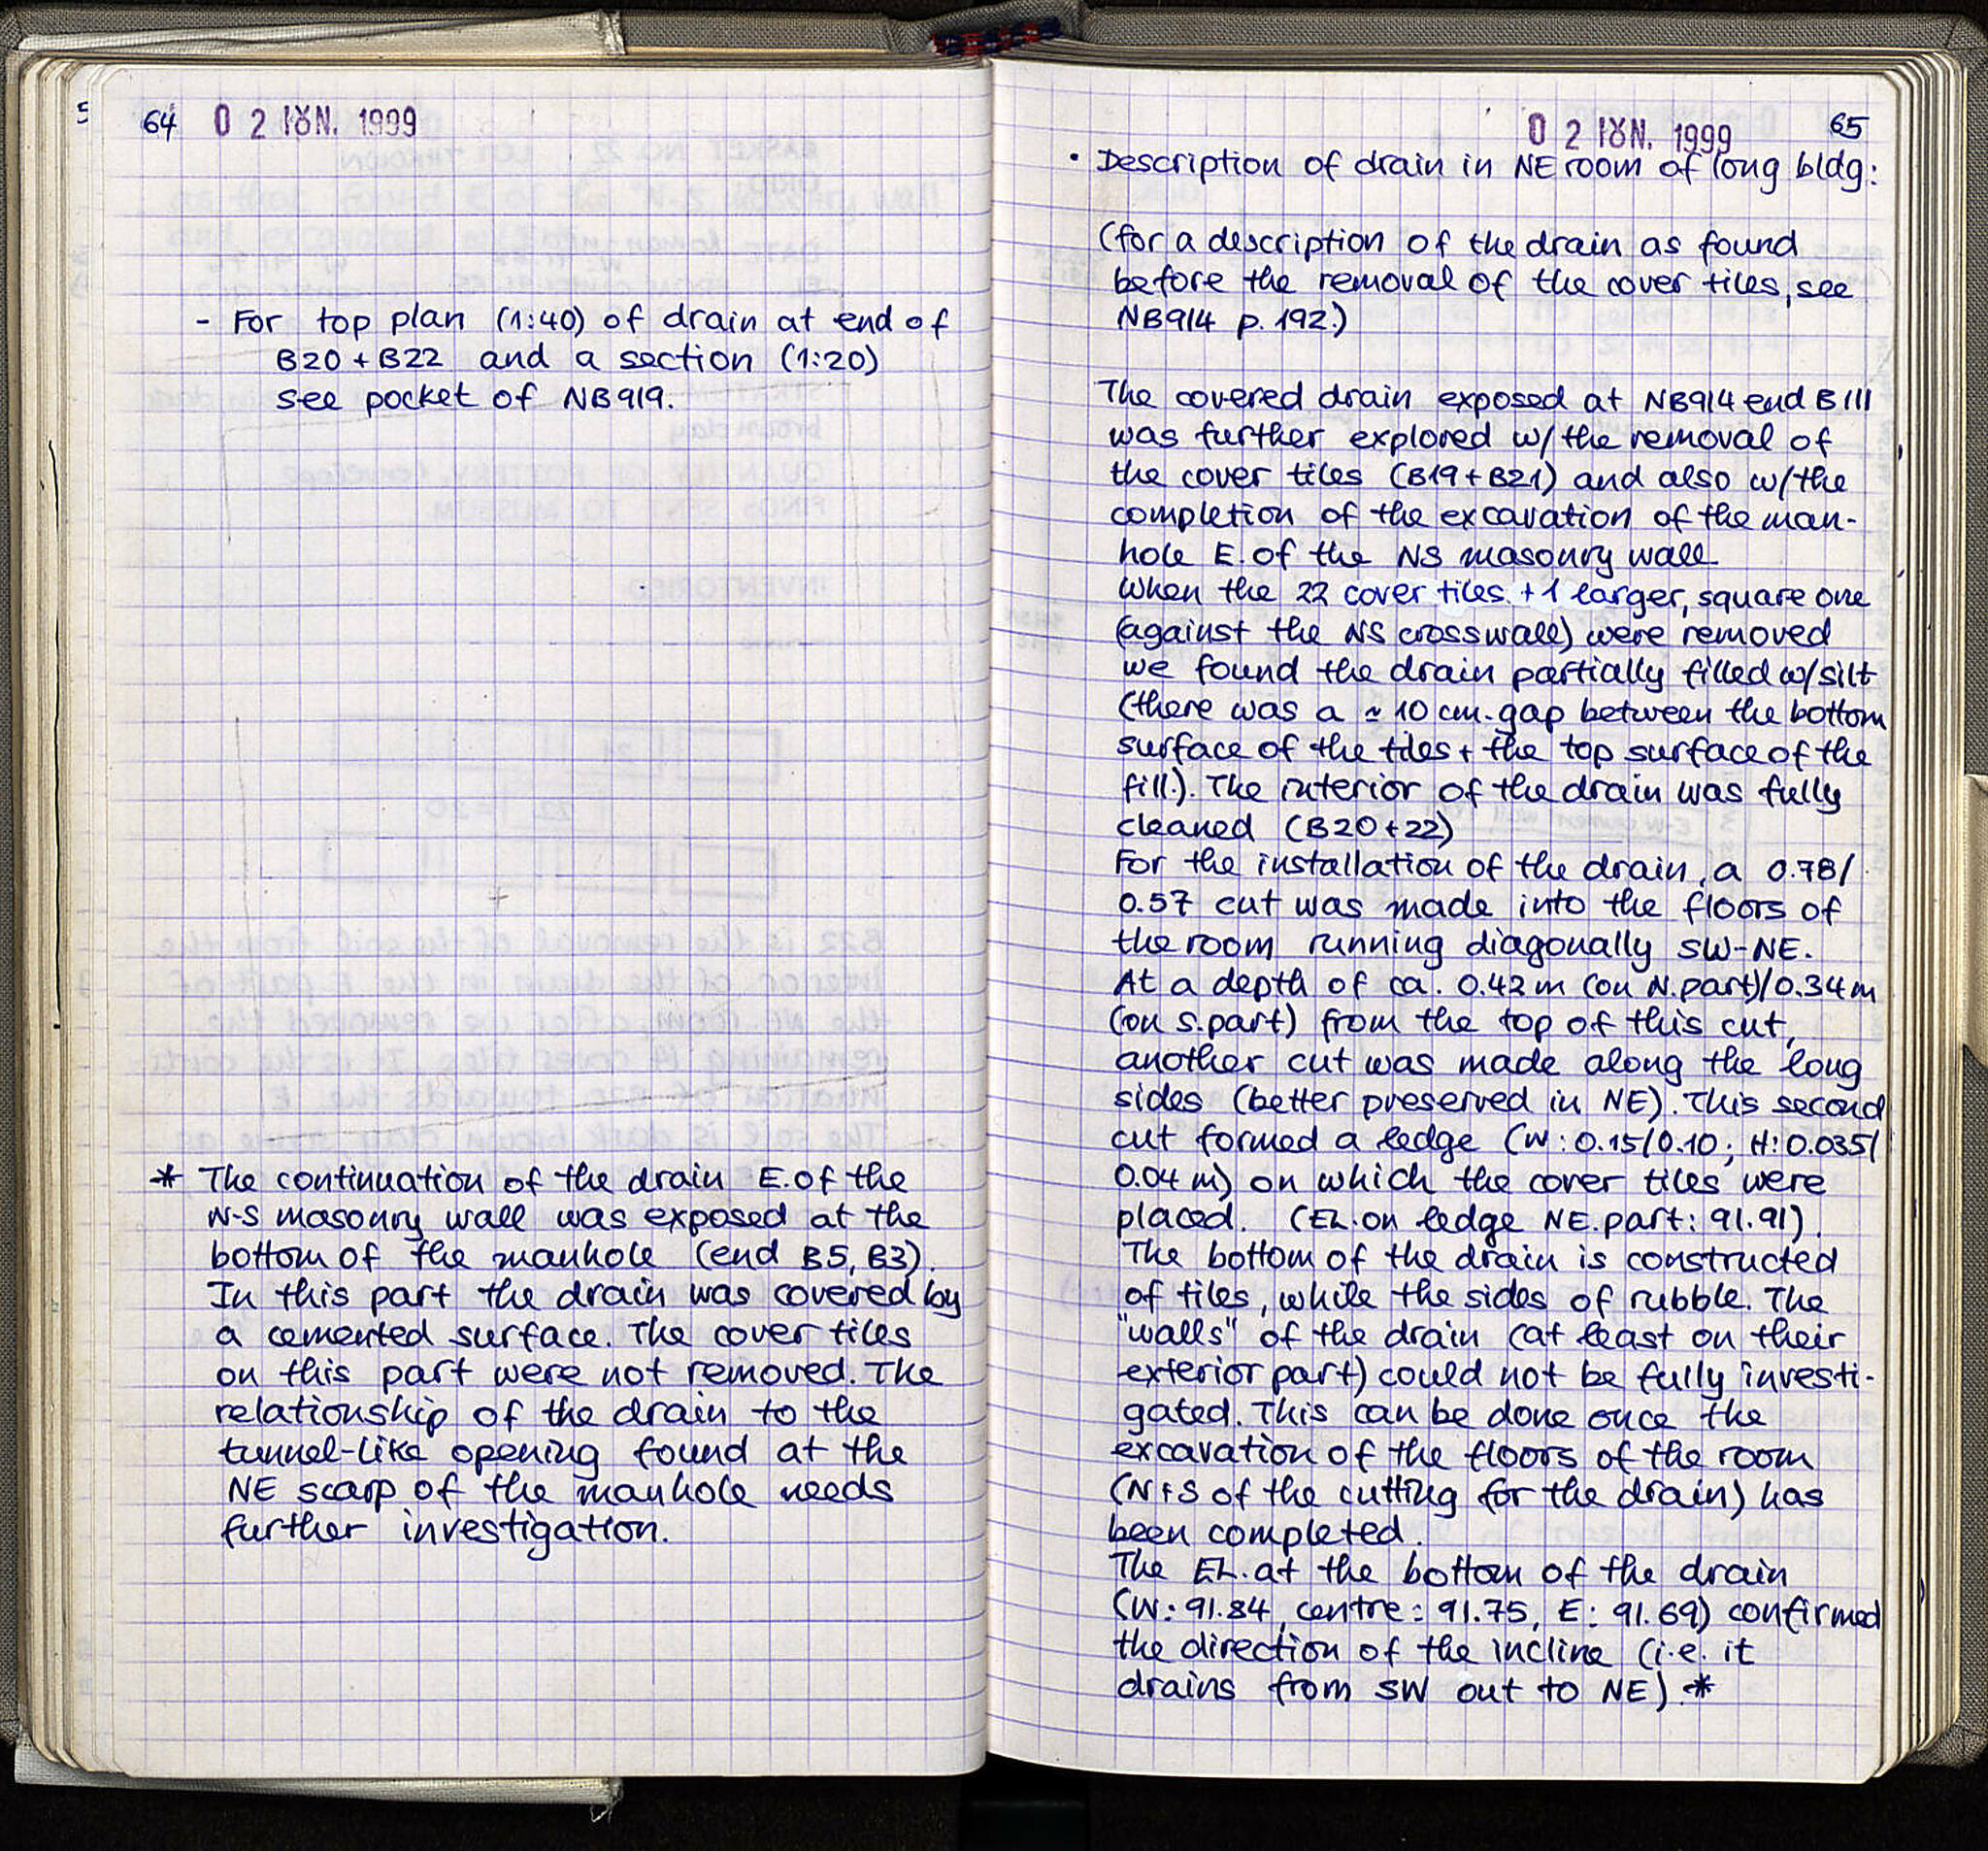 64 02 ΙȢΝ. 1999
- For top plan (1:40) of drain at end of
B20 + B22 and a section (1:20)
see pocket of NB919.
* The continuation of the drain E. of the
N-S masonry wall was exposed at the
bottom of the manhole (end B5, B3).
In this part the drain was covered by
a cemented surface. The cover tiles
on this part were not removed. The
relationship of the drain to the
tunnel-like opening found at the
NE scarp of the manhole needs
further investigation.
02 ΙȢΝ. 1999 65
• Description of drain in NE room of long bldg:
(for a description of the drain as found
before the removal of the cover tiles, see
NB914 p. 192.)
The covered drain exposed at NB914 end B111
was further explored w/ the removal of
the cover tiles (B19 + B21) and also w/ the
completion of the excavation of the man-
hole E. of the NS masonry wall.
When the 22 cover tiles + 1 larger, square one
(against the NS crosswall) were removed
we found the drain partially filled w/ silt
(there was a ≃ 10 cm. gap between the bottom
surface of the tiles + the top surface of the
fill.). The interior of the drain was fully
cleaned (B20 + 22)
For the installation of the drain, a 0.78/
0.57 cut was made into the floors of
the room running diagonally SW-NE.
At a depth of ca. 0.42 m (on N. part)/0.34 m
(on S. part) from the top of this cut,
another cut was made along the long
sides (better preserved in NE). This second
cut formed a ledge (W: 0.15/0.10; H: 0.035/
0.04 m) on which the cover tiles were
placed. (EL. on ledge NE. part: 91.91).
The bottom of the drain is constructed
of tiles, while the sides of rubble. The
"walls" of the drain (at least on their
exterior part) could not be fully investi-
gated. This can be done once the
excavation of the floors of the room
(N + S of the cutting for the drain) has
been completed.
The EL. at the bottom of the drain
(W: 91.84, centre: 91.75, E: 91.69) confirmed
the direction of the incline (i.e. it
drains from SW out to NE).*